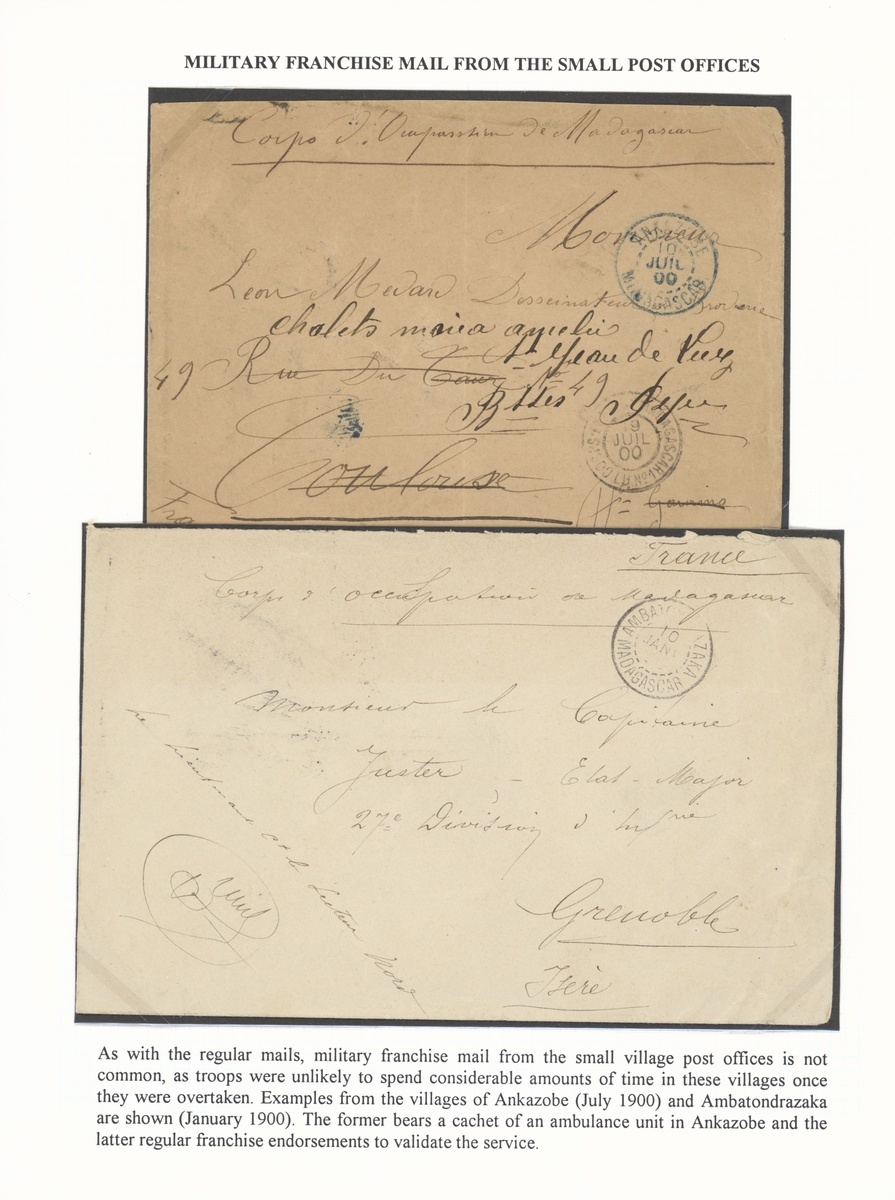 MILITARY FRANCHISE MAIL FROM THE SMALL POST OFFICES
Corps d'Ocupasstion de Madagascar
Monsieur
ANKAZOBE
10
JUIL
00
MADAGASCAR
Leon Medard Dessinateur
chalets maria amelie
49 Rue Du St Jean de Luz
Bsses
Toulouse
9
JUIL
00
Hte Garonne
France
Corps d'occupation de Madagascar
AMBAT ZAKA
10
JANV
MADAGASCAR
Monsieur le Capitaine
Juster - Etat-Major
27e Division d'Infrie
Grenoble
Isère
Le Lieutenant Cdt le Secteur Nord
As with the regular mails, military franchise mail from the small village post offices is not
common, as troops were unlikely to spend considerable amounts of time in these villages once
they were overtaken. Examples from the villages of Ankazobe (July 1900) and Ambatondrazaka
are shown (January 1900). The former bears a cachet of an ambulance unit in Ankazobe and the
latter regular franchise endorsements to validate the service.